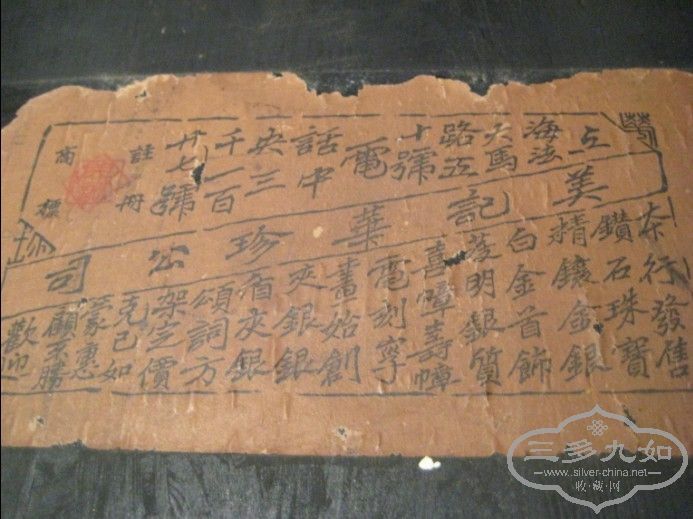 上
海法
大馬
路五
十號
電
話中
央三
千一百
廿七號
註冊
商標
華
珍
美記華珍公司
本行發售
鑽石珠寶
精鑲金銀
白金首飾
發明銀質
喜幛壽幛
電刻寧
書始創
夾銀銀
盾夾銀
頌詞方
架定價
克己如
蒙惠
顧不勝
歡迎
三多九如
www.silver-china.net
收·藏·网